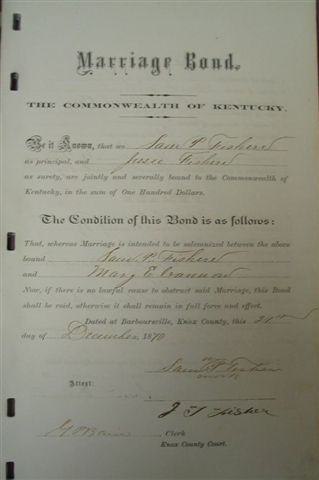 Marriage Bond.
THE COMMONWEALTH OF KENTUCKY.
Be it Known, that we Sam P. Fisher
as principal, and Jesse Fisher
as surety, are jointly and severally bound to the Commonwealth of
Kentucky, in the sum of One Hundred Dollars.
The Condition of this Bond is as follows:
That, whereas Marriage is intended to be solemnized between the above
bound Sam P. Fisher
and Mary E Cannon
Now, if there is no lawful cause to obstruct said Marriage, this Bond
shall be void, otherwise it shall remain in full force and effect.
Dated at Barbourville, Knox County, this 21st
day of December 1870
Sam P Fisher
Attest:
J T Fisher
Clerk
Knox County Court.